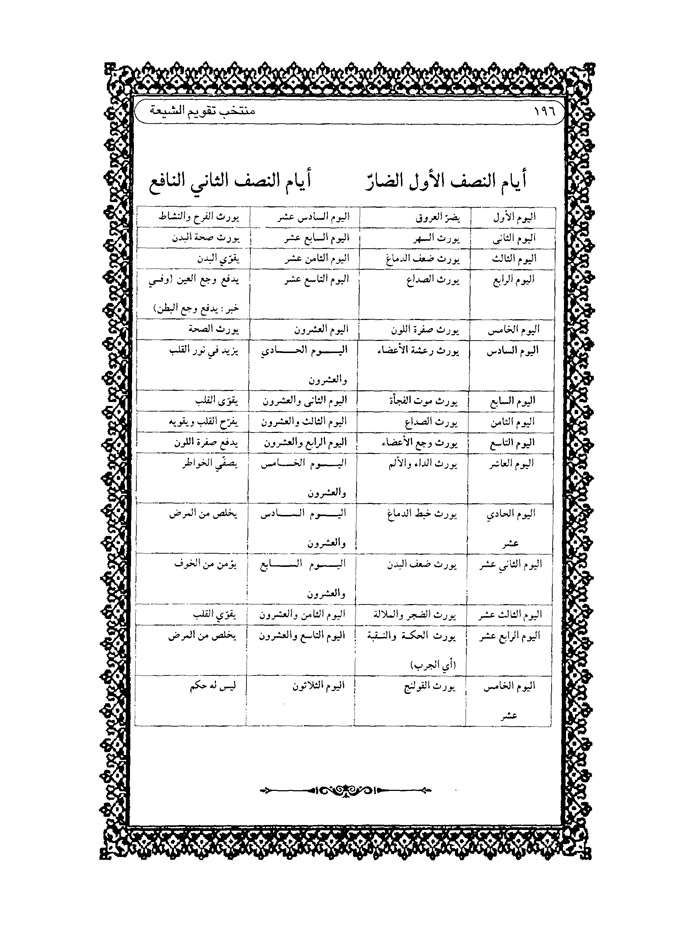 ١٩٦ منتخب تقويم الشيعة
أيام النصف الأول الضارّ أيام النصف الثاني النافع
اليوم الأول يضرّ العروق اليوم السادس عشر يورث الفرح والنشاط
اليوم الثاني يورث السهر اليوم السابع عشر يورث صحة البدن
اليوم الثالث يورث ضعف الدماغ اليوم الثامن عشر يقوّي البدن
اليوم الرابع يورث الصداع اليوم التاسع عشر يدفع وجع العين (وفي
خبر: يدفع وجع البطن)
اليوم الخامس يورث صفرة اللون اليوم العشرون يورث الصحة
اليوم السادس يورث رعشة الأعضاء اليوم الحادي يزيد في نور القلب
والعشرون
اليوم السابع يورث موت الفجأة اليوم الثاني والعشرون يقوّى القلب
اليوم الثامن يورث الصداع اليوم الثالث والعشرون يفرّح القلب ويقويه
اليوم التاسع يورث وجع الأعضاء اليوم الرابع والعشرون يدفع صفرة اللون
اليوم العاشر يورث الداء والألم اليوم الخامس يصفّي الخواطر
والعشرون
اليوم الحادي يورث خبط الدماغ اليوم السادس يخلص من المرض
عشر والعشرون
اليوم الثاني عشر يورث ضعف البدن اليوم السابع يؤمن من الخوف
والعشرون
اليوم الثالث عشر يورث الضجر والملالة اليوم الثامن والعشرون يقوّي القلب
اليوم الرابع عشر يورث الحكة والنقبة اليوم التاسع والعشرون يخلص من المرض
(أي الجرب)
اليوم الخامس يورث القولنج اليوم الثلاثون ليس له حكم
عشر